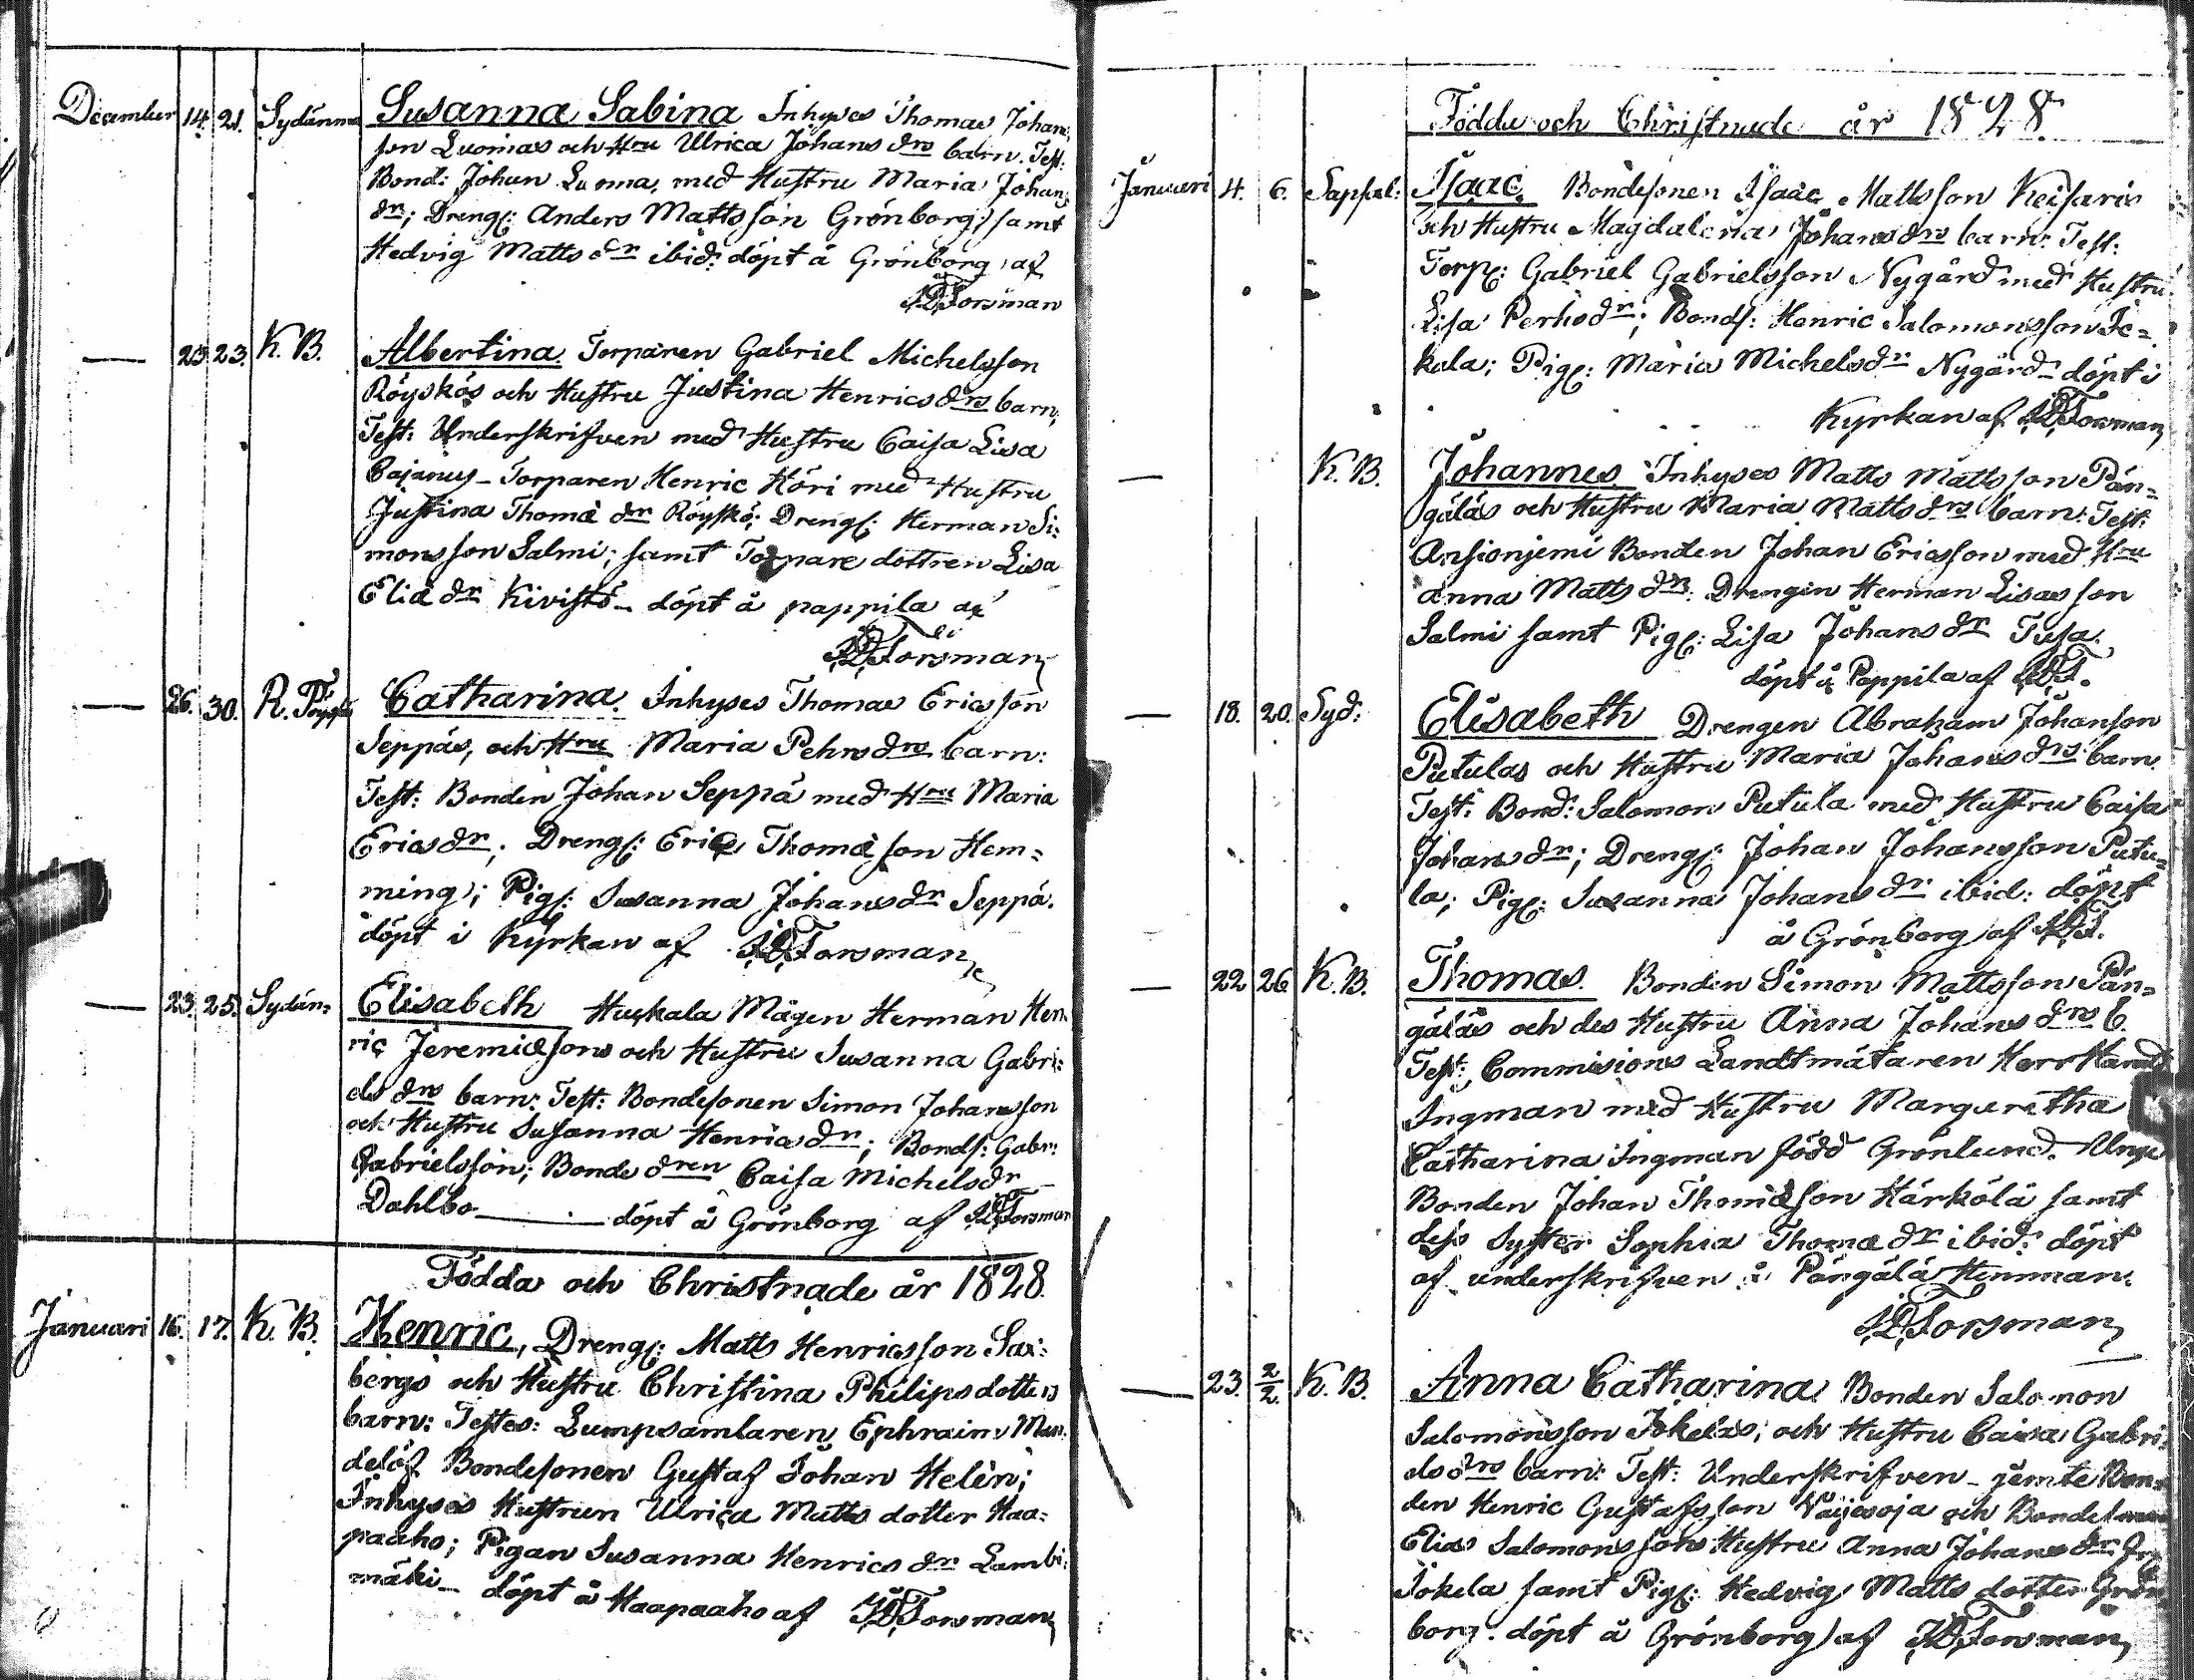 December 14. 21. Sydänma Susanna Sabina Inhyses Thomas Johans
son Luomas och Hru Ulrica Johans drs barn. Test:
Bond: Johan Luoma, med Hustru Maria Johans
dr; Drengs: Anders Mattsson Grönborg, samt
Hedvig Matts dr ibid: döpt å Grönborg af
J.D. Forsman
— 23. 23. K. B. Albertina. Torparen Gabriel Michelsson
Röyskös och Hustru Justina Henrics drs barn;
Test: Underskrifven med Hustru Caisa Lisa
Cajanus – Torparen Henric Höri med Hustru
Justina Thomæ dr Röyskö; Drengs: Herman Si:
monsson Salmi; samt Torpare dottren Lisa
Eliæ dr Kivistö – döpt å pappila af
J.D. Forsman
— 26. 30. R. Catharina. Inhyses Thomas Ericsson
Seppäs, och Hru Maria Pehrs drs barn:
Test: Bonden Johan Seppä med Hru Maria
Erics dr; Drengs: Eric Thomæson Hem=
ming; Pigs: Susanna Johans dr Seppä.
döpt i Kyrkan af J.D. Forsman
— 23. 25. Sydän= Elisabeth Huskala Mågen Herman Hen
ric Jeremiæsons och Hustru Susanna Gabri:
els drs barn: Test: Bondesonen Simon Johansson
och Hustru Susanna Henrics dr; Bonds: Gabr:
Gabrielsson; Bonde dren Caisa Michels dr
Dahlbo — döpt å Grönborg af J.D. Forsman
Födda och Christnade år 1828.
Januari 16. 17. K. B. Henric, Drengs: Matts Henricsson Sax:
bergs och Hustru Christina Philips dotters
barn: Testes: Lumpsamlaren Ephraim Man
delöf Bondesonen Gustaf Johan Helèn;
Inhyses Hustrun Ulrica Matts dotter Haa=
paaho; Pigan Susanna Henrics dr Lambi:
mäki – döpt å Haapaaho af J.D. Forsman
Födde och Christnade år 1828.
Januari 4. 6. Sapsal: Isaac. Bondesonen Isaac Mattsson Keisaris
och Hustru Magdalena Johans drs barn: Test:
Torp: Gabriel Gabrielsson Nygård med Hustru
Lisa Pehrs dr; Bonds: Henric Salomonsson Jo=
kela; Pigs: Maria Michels dr Nygård – döpt i
Kyrkan af J.D. Forsman
— K. B. Johannes Inhyses Matts Mattsson Pän=
gäläs och Hustru Maria Matts drs barn: Test:
Ansionjemi Bonden Johan Ericsson med Hru
Anna Matts dr: Drengen Herman Lisasson
Salmi samt Pigs: Lisa Johans dr Tusa,
döpt å Pappila af J.D.F.
— 18. 20. Syd: Elisabeth Drengen Abraham Johanson
Putulas och Hustru Maria Johans drs barn.
Test: Bond: Salomon Putula med Hustru Caisa
Johans dr; Drengs: Johan Johansson Putu=
la; Pigs: Susanna Johans dr ibid: döpt
å Grönborg af J.D.F.
— 22 26 K. B. Thomas. Bonden Simon Mattsson Pän=
gäläs och des Hustru Anna Johans drs b.
Test: Commisions Landtmätaren Herr
Ingman med Hustru Margaretha
Catharina Ingman född Grönlund. Unge
Bonden Johan Thomæson Härkölä samt
dess Syster Sophia Thomæ dr ibid: döpt
af underskrifven å Pängälä Hemman.
J.D. Forsman
— 23. 2/2. K. B. Anna Catharina. Bonden Salomon
Salomonsson Jokelas; och Hustru Caisa Gabri:
els drs barn: Test: Underskrifven – jemte Bon=
den Henric Gustafsson Väijesoja och Bondesonen
Elias Salomonssons Hustru Anna Johans dr
Jokela samt Pigs: Hedvig Matts dotter Grön
borg. döpt å Grönborg af J.D. Forsman